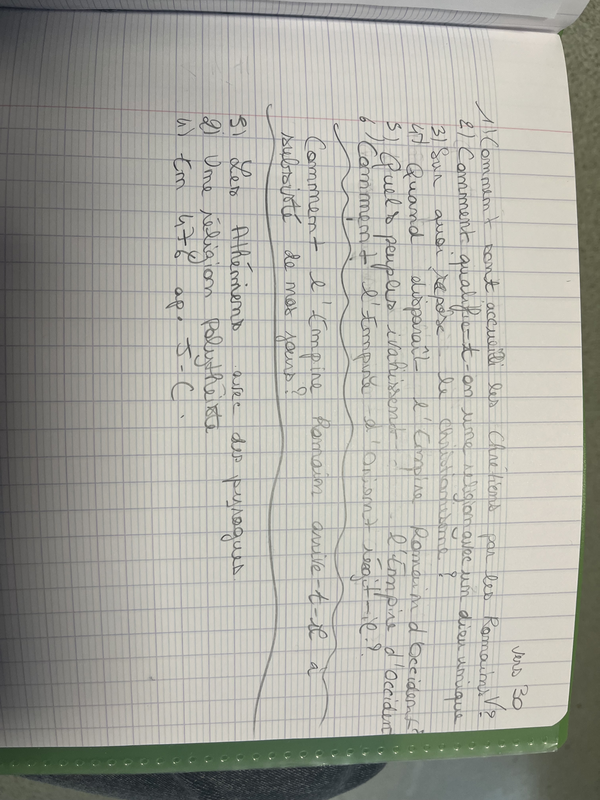 vers 30
1) Comment sont accueilli les Chrétiens par les Romains V?
2) Comment qualifie-t-on une religion avec un dieu unique
3) Sur quoi repose le christianisme ?
4) Quand disparaît l'Empire Romain d'Occident?
5) Quels peuples ivahissent l'Empire d'Occident
6) Comment l'Empire d'Orient réagit-il ?
Comment l'Empire Romain arrive-t-il à
subsisté de nos jours ?
3) Les Athéniens avec des pyroques
2) Une religion polythéiste
4) En 476 ap. J-C.